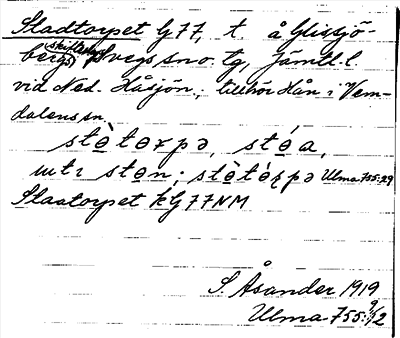 Stadtorpet G 77, t. å Glissjö-
bergs skifteslag, Svegs sn o. tg, Jämtl. l.
vid Ned. Håsjön; tillhör Hån i Vem-
dalens sn.
stòtorpə, stóa,
uti ston; stòtórpə Ulma 755:29
Staatorpet kG 77 NM
S. Åsander 1919
Ulma 755:9/12